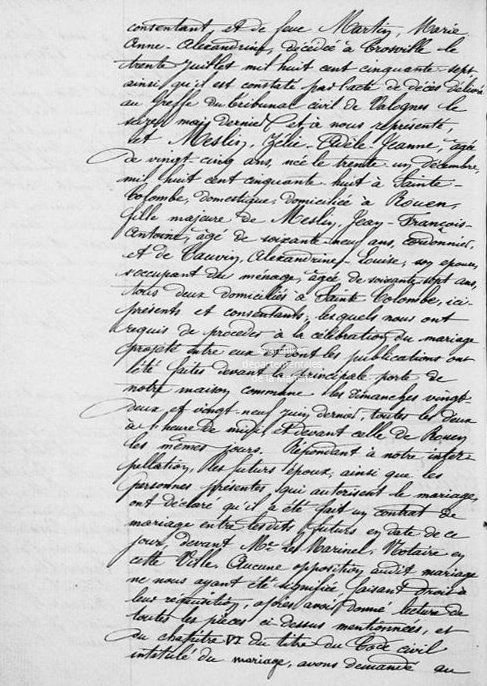 consentant, et de feue Martin, Marie
Anne Alexandrine, décédée à Crosville le
trente juillet mil huit cent cinquante-sept
ainsi qu'il est constaté par l'acte de décès délivré
au Greffe du tribunal civil de Valognes le
seize mai dernier et à nous représenté
et Meslin, Zélie Adèle Jeanne, âgée
de vingt-cinq ans, née le trente un décembre
mil huit cent cinquante huit à Sainte-
Colombe, domestique, domiciliée à Rouen,
fille majeure de Meslin, Jean-François-
Antoine, âgé de soixante-neuf ans, cordonnier,
et de Vauvrin, Alexandrine Louise, son épouse,
s'occupant du ménage, âgée de soixante-sept ans,
tous deux domiciliés à Sainte Colombe, ici
présents et consentants, lesquels nous ont
requis de procéder à la célébration du mariage
projeté entre eux et dont les publications ont
été faites devant la principale porte de
notre maison commune les Dimanches vingt-
deux et vingt-neuf juin dernier, toutes les deux
à l'heure de midi et devant celle de Rouen
les mêmes jours. Répondant à notre inter-
pellation, les futurs époux, ainsi que les
personnes présentes, qui autorisent le mariage,
ont déclaré qu'il a été fait un contrat de
mariage entre lesdits futurs en date de ce
jour, devant Me Le Marinel, Notaire en
cette Ville. Aucune opposition audit mariage
ne nous ayant été signifiée, faisant droit à
leur réquisition, après avoir donné lecture de
toutes les pièces ci-dessus mentionnées, et
du chapitre VI du titre du Code civil
intitulé du mariage, avons demandé au